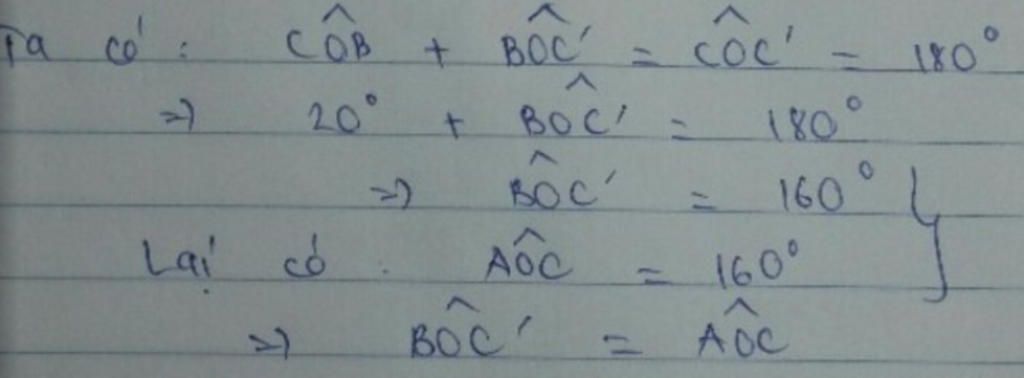 Ta có: CÔB + BÔC' = CÔC' = 180°
=> 20° + BÔC' = 180°
=> BÔC' = 160°
Lại có. AÔC = 160°
=> BÔC' = AÔC